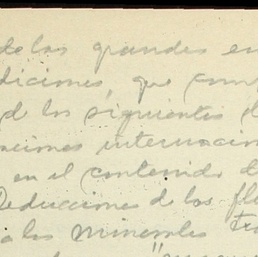 de las grandes en
diciones, que
de los siguientes
internacion
en el contenido d
Deducciones de los fl
a los minerales tra